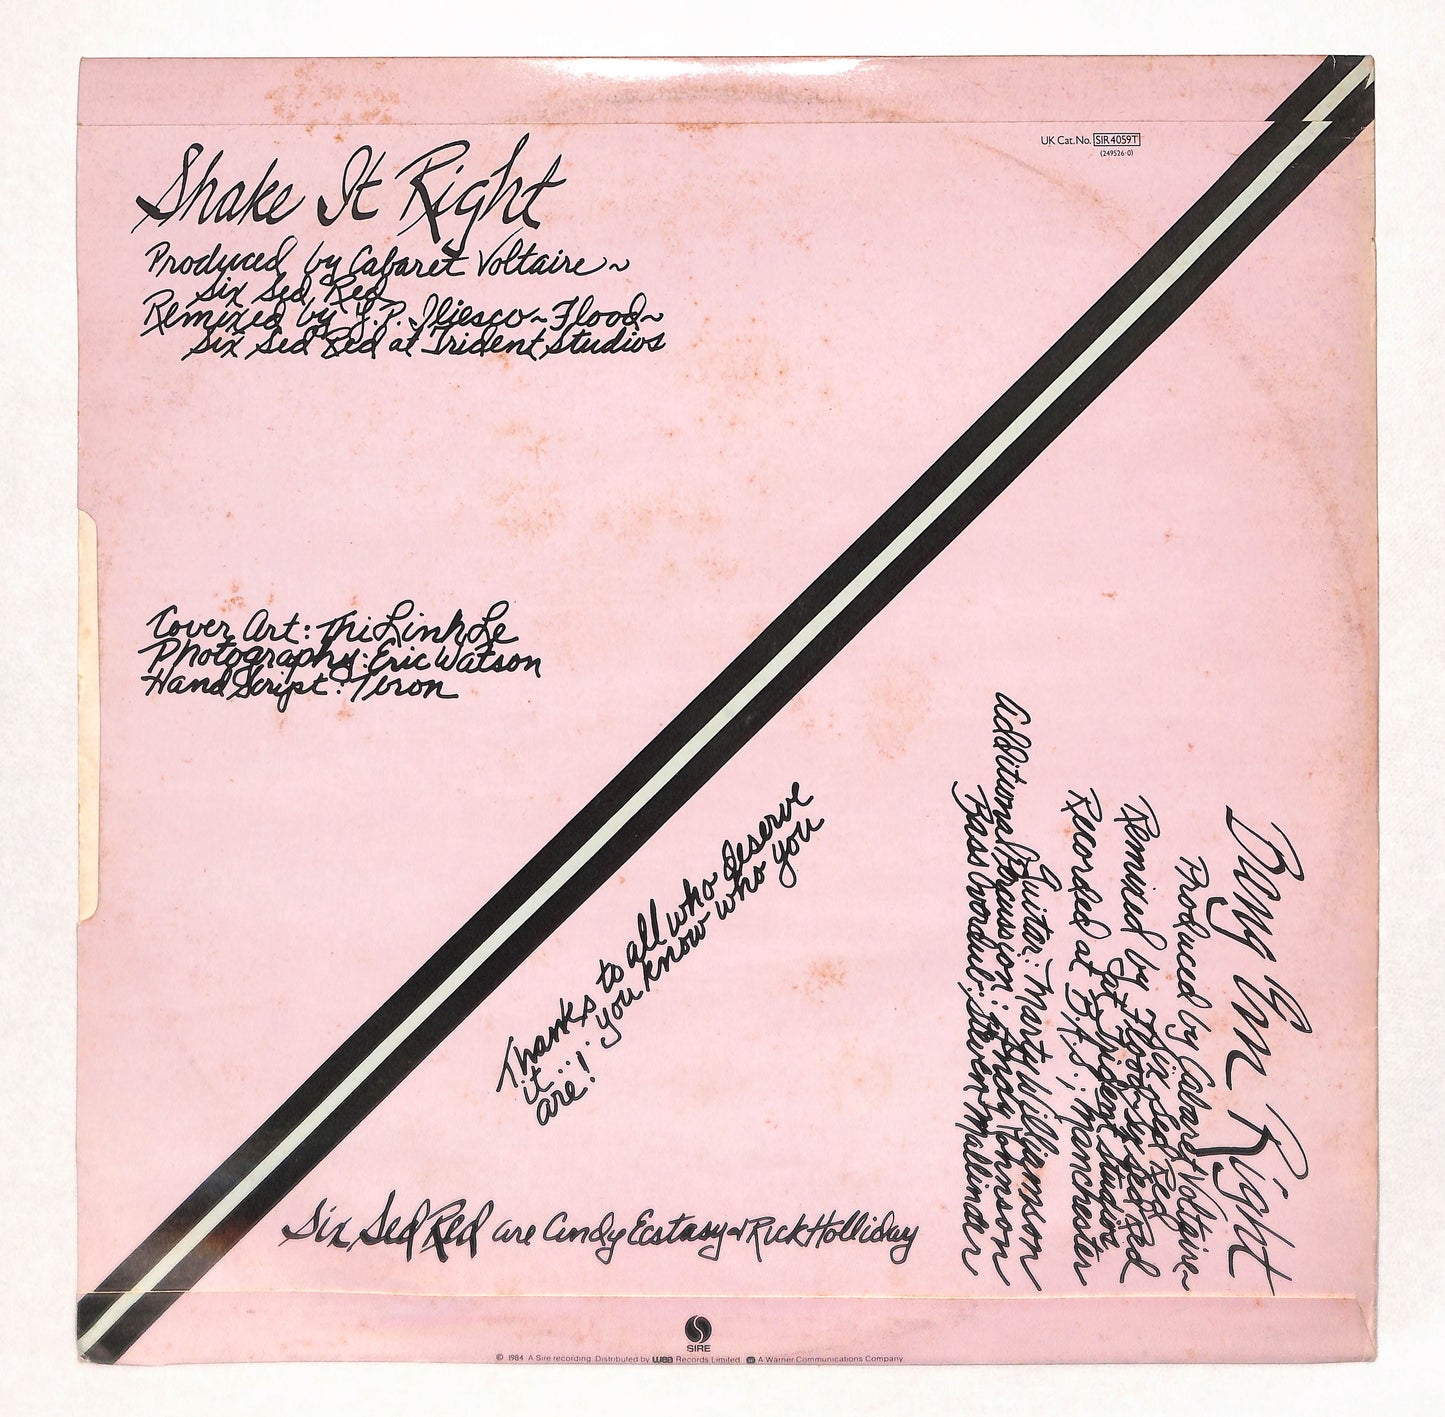 Shake It Right
Produced by Cabaret Voltaire~
Six Sed Red
Remixed by Y.P. Iliesco~Flood~
Six Sed Red at Trident Studios
UK Cat. No. SIR 4059T
(249526-0)
Cover Art: Thi Linh Le
Photography: Eric Watson
Hand Script: Teron
Thanks to all who deserve
it... you know who you
are!
Bong En Right
Produced by Cabaret Voltaire~
Six Sed Red
Remixed by Flood~Six Sed Red
at Trident Studios
Recorded at B.A.S.; Manchester
Guitar: Marty Williamson
Additional Percussion: Andy Johnson
Bass Overdub: Steven Mallinder
Six Sed Red are Cindy Ecstasy & Rick Holliday
SIRE
© 1984 A Sire recording. Distributed by wea Records Limited. A Warner Communications Company